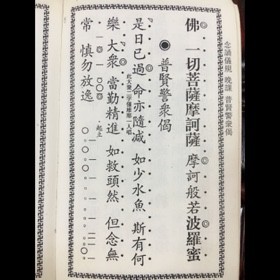 念誦儀規 晚課 普賢警眾偈
佛 一切菩薩摩訶薩 摩訶般若波羅蜜
◉普賢警眾偈
是日已過 命亦隨減 如少水魚 斯有何
樂 大眾 當勤精進 如救頭然 但念無
常 慎勿放逸